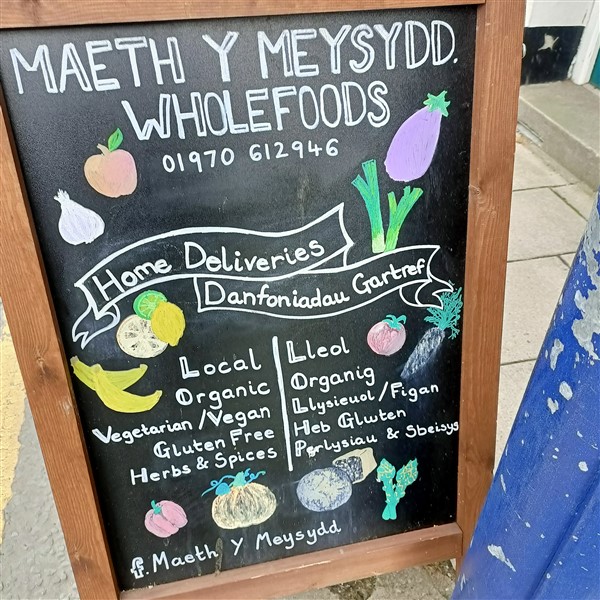 MAETH Y MEYSYDD.
WHOLEFOODS
01970 612946
Home Deliveries
Danfoniadau Gartref
Local
Organic
Vegetarian/Vegan
Gluten Free
Herbs & Spices
Lleol
Organig
Llysieuol/Figan
Heb Glwten
Perlysiau & Sbeisys
f. Maeth Y Meysydd